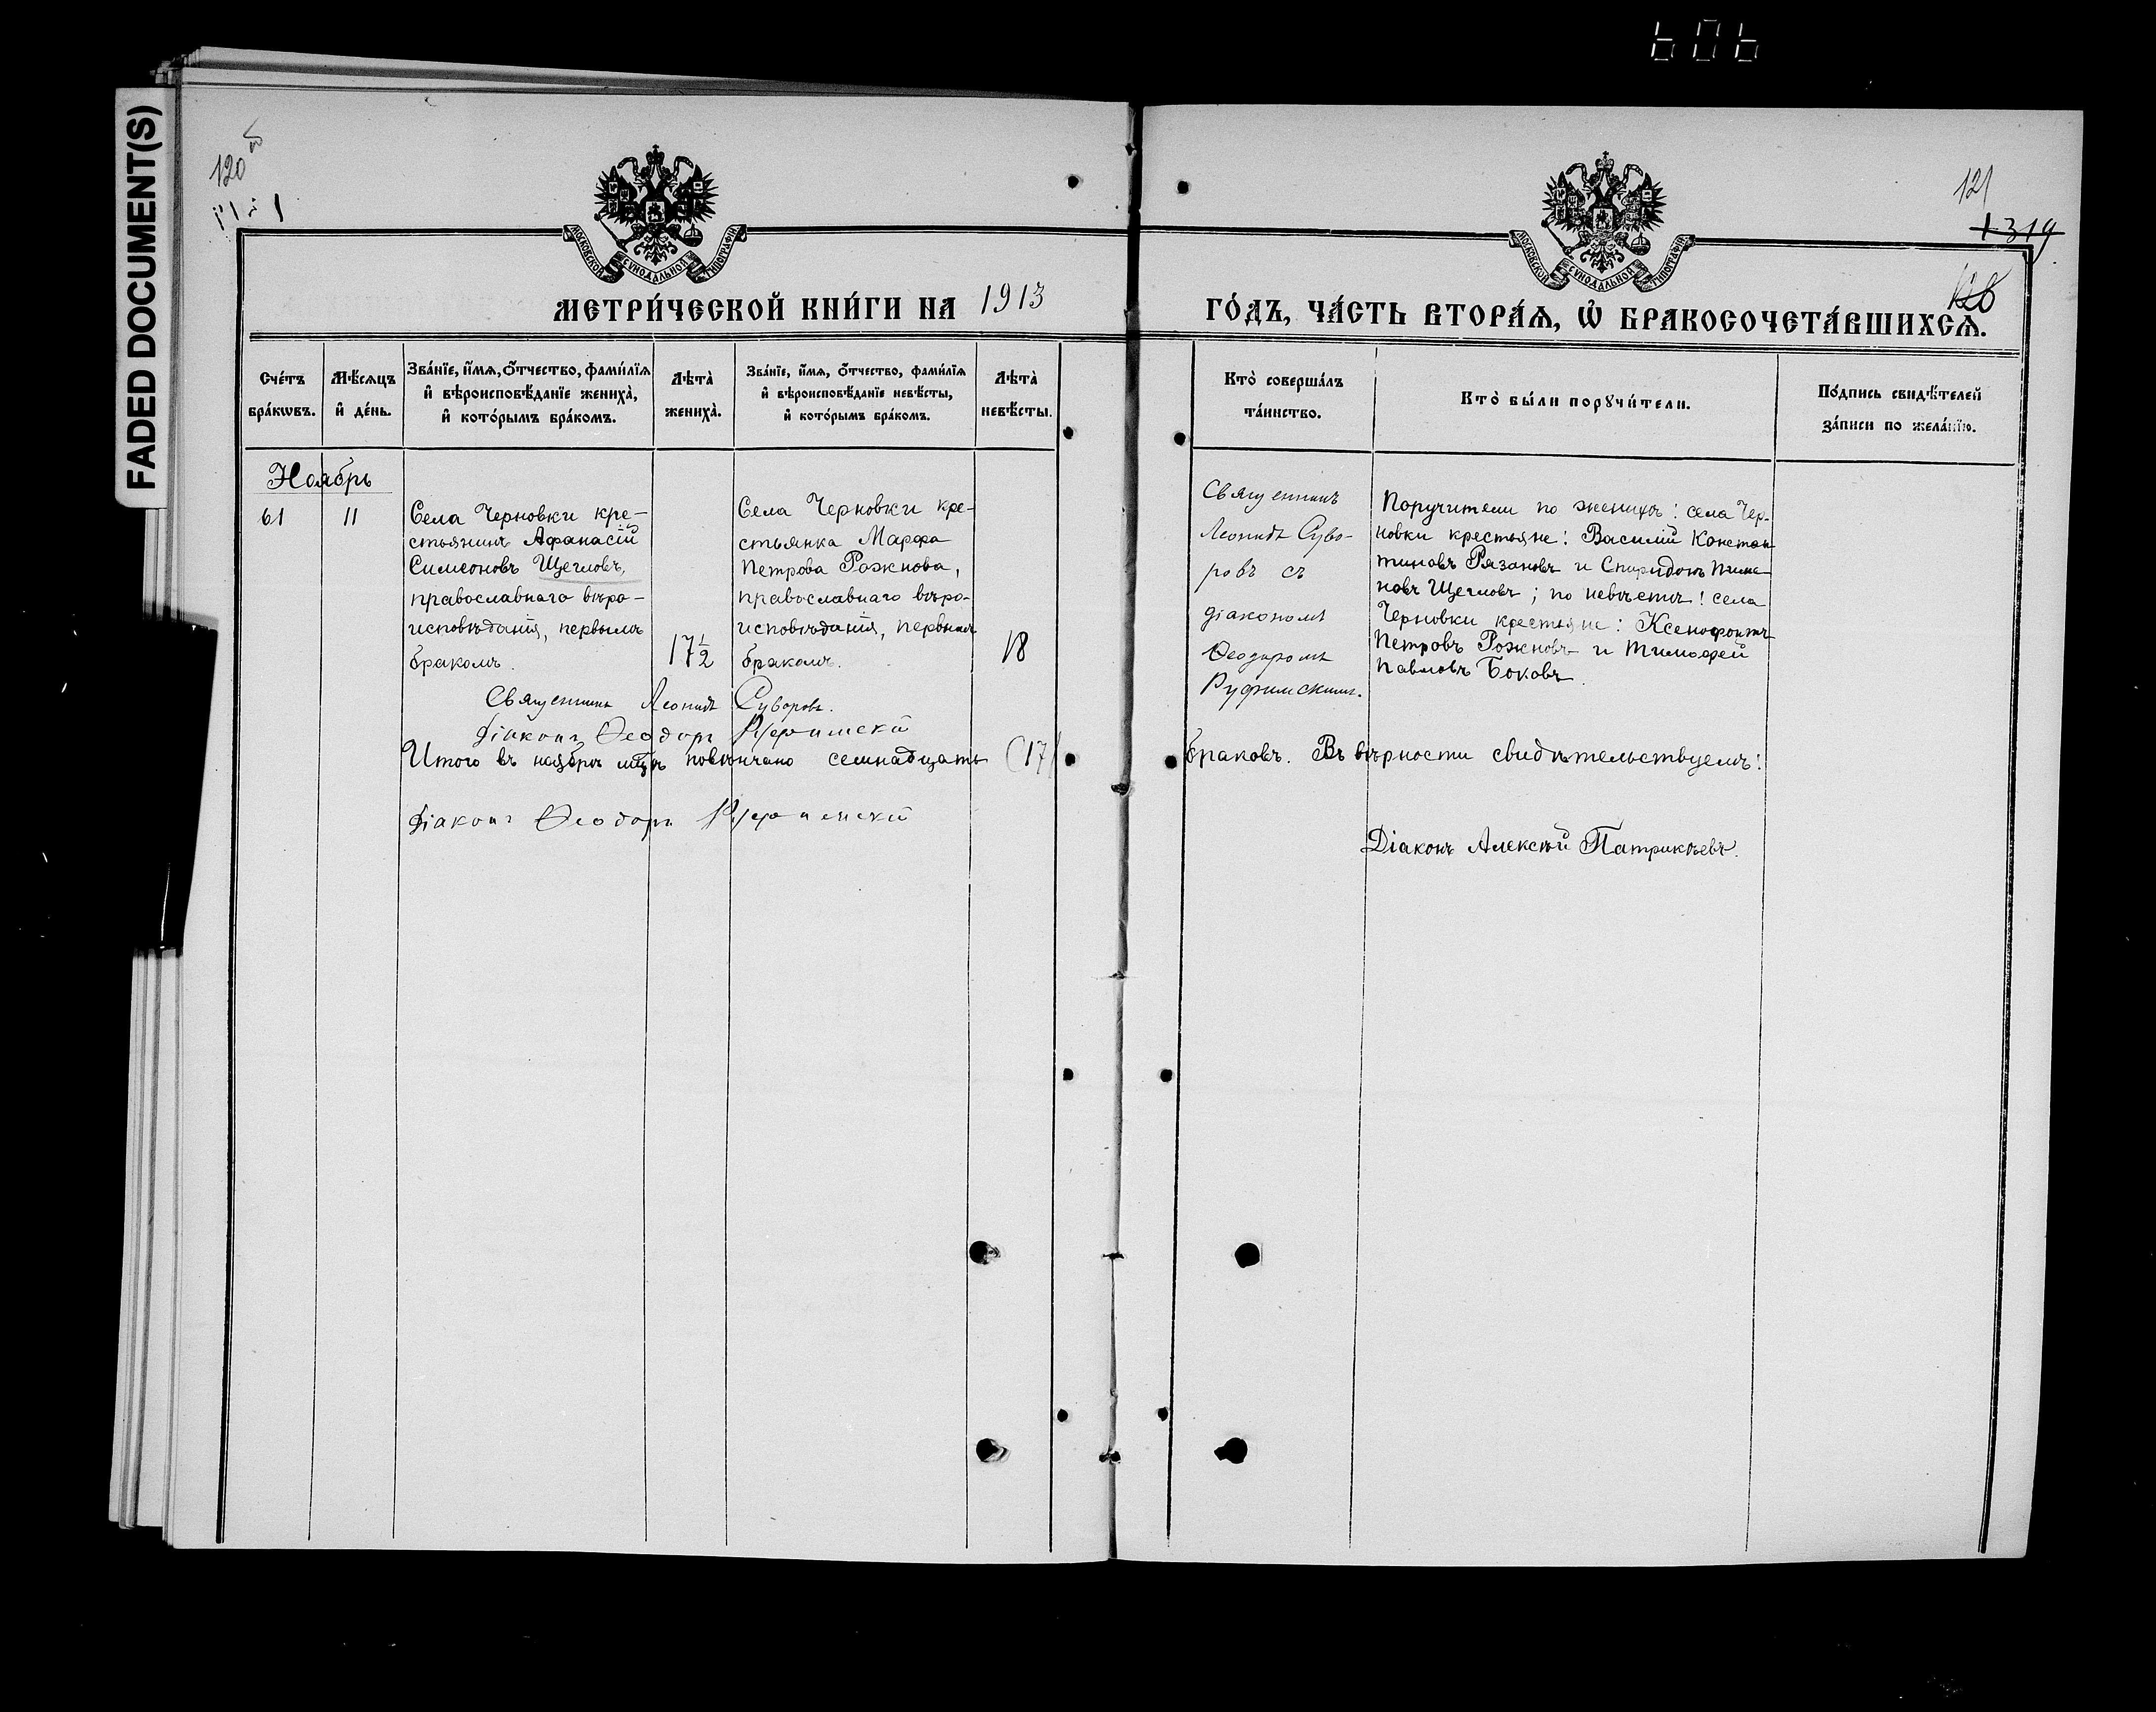 606
FADED DOCUMENT(S)
120 об
121
1319
МОСКОВСКОЙ СѴНОДАЛЬНОЙ ТИПОГРАФІИ
МОСКОВСКОЙ СѴНОДАЛЬНОЙ ТИПОГРАФІИ
МЕТРИ́ЧЕСКОЙ КНИ́ГИ НА 1913
ГО́ДЪ, ЧА́СТЬ ВТОРА́Ѧ, Ѡ҆ БРАКОСОЧЕТА́ВШИХСѦ.
Сче́тъ
бра́кѡвъ.
Мѣ́сѧцъ
и҆ де́нь.
Зва́нїе, и҆́мѧ, ѻ҆́тчество, фами́лїѧ
и҆ вѣроисповѣ́данїе жениха̀,
и҆ кото́рымъ бра́комъ.
Лѣта̀
жениха̀.
Зва́нїе, и҆́мѧ, ѻ҆́тчество, фами́лїѧ
и҆ вѣроисповѣ́данїе невѣ́сты,
и҆ кото́рымъ бра́комъ.
Лѣта̀
невѣ́сты.
Кто̀ соверша́лъ
та́инство.
Кто̀ бы́ли порꙋчи́тели.
По́дпись свидѣ́телей
за́писи по жела́нїю.
Ноябрь
61
11
Села Черновки кре-
стьянинъ Афанасій
Симеоновъ Щегловъ,
православнаго вѣро-
исповѣданія, первымъ
бракомъ.
17½
Села Черновки кре-
стьянка Марфа
Петрова Рожнова,
православнаго вѣро-
исповѣданія, первымъ
бракомъ.
18
Священникъ
Леонидъ Суво-
ровъ съ
діакономъ
Ѳеодоромъ
Руфимскимъ.
Поручители по женихѣ: села Чер-
новки крестьяне: Василій Констан
тиновъ Рязановъ и Спиридонъ Пиме
новъ Щегловъ; по невѣстѣ: села
Черновки крестьяне: Ксенофонтъ
Петровъ Рожновъ и Тимофей
Павловъ Боковъ.
Священникъ Леонидъ Суворовъ.
Діаконъ Ѳеодоръ Руфимскій
Итого въ ноябрѣ мѣсяцѣ повѣнчано семнадцать (17)
браковъ. Въ вѣрности свидѣтельствуемъ:
Діаконъ Ѳеодоръ Руфимскій
Діаконъ Алексѣй Патрикѣевъ.